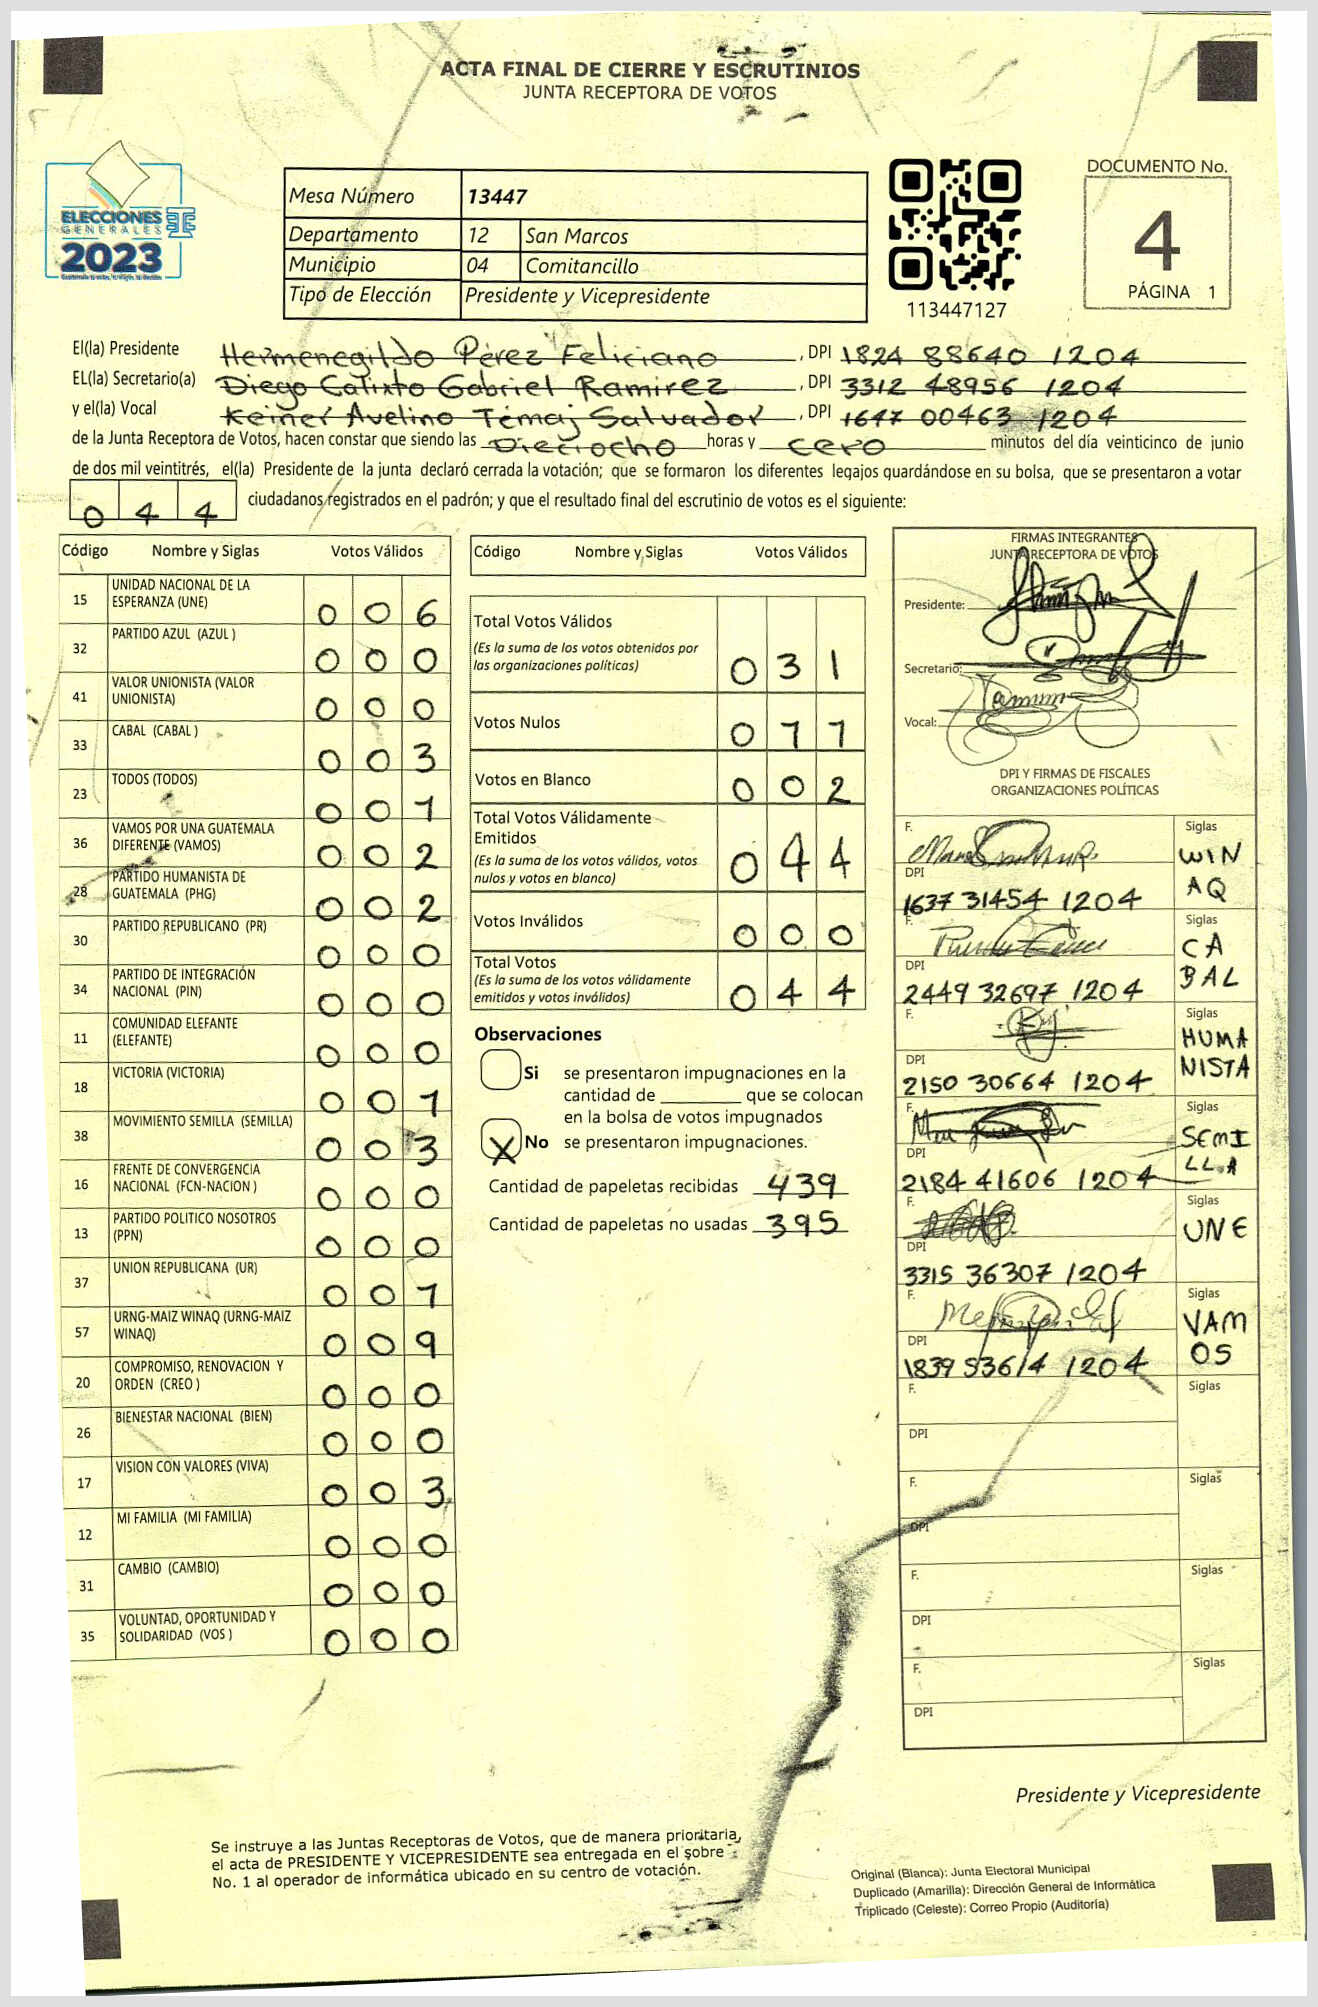 ACTA FINAL DE CIERRE Y ESCRUTINIOS
JUNTA RECEPTORA DE VOTOS
ELECCIONES
GENERALES
2023
Mesa Número 13447
Departamento 12 San Marcos
Municipio 04 Comitancillo
Tipo de Elección Presidente y Vicepresidente
113447127
DOCUMENTO No.
4
PÁGINA 1
El(la) Presidente Hermenegildo Pérez Feliciano, DPI 1824 88640 1204
EL(la) Secretario(a) Diego Calixto Gabriel Ramirez, DPI 3312 48956 1204
y el(la) Vocal Keiner Avelino Témaj Salvador, DPI 1647 00463 1204
de la Junta Receptora de Votos, hacen constar que siendo las Dieciocho horas y cero minutos del día veinticinco de junio
de dos mil veintitrés, el(la) Presidente de la junta declaró cerrada la votación; que se formaron los diferentes legajos guardándose en su bolsa, que se presentaron a votar
044 ciudadanos registrados en el padrón; y que el resultado final del escrutinio de votos es el siguiente:
Código Nombre y Siglas Votos Válidos
15 UNIDAD NACIONAL DE LA
ESPERANZA (UNE) 006
32 PARTIDO AZUL (AZUL ) 000
41 VALOR UNIONISTA (VALOR
UNIONISTA) 000
33 CABAL (CABAL ) 003
23 TODOS (TODOS) 001
36 VAMOS POR UNA GUATEMALA
DIFERENTE (VAMOS) 002
28 PARTIDO HUMANISTA DE
GUATEMALA (PHG) 002
30 PARTIDO REPUBLICANO (PR) 000
34 PARTIDO DE INTEGRACIÓN
NACIONAL (PIN) 000
11 COMUNIDAD ELEFANTE
(ELEFANTE) 000
18 VICTORIA (VICTORIA) 001
38 MOVIMIENTO SEMILLA (SEMILLA) 003
16 FRENTE DE CONVERGENCIA
NACIONAL (FCN-NACION ) 000
13 PARTIDO POLITICO NOSOTROS
(PPN) 000
37 UNION REPUBLICANA (UR) 001
57 URNG-MAIZ WINAQ (URNG-MAIZ
WINAQ) 009
20 COMPROMISO, RENOVACION Y
ORDEN (CREO ) 000
26 BIENESTAR NACIONAL (BIEN) 000
17 VISION CON VALORES (VIVA) 003
12 MI FAMILIA (MI FAMILIA) 000
31 CAMBIO (CAMBIO) 000
35 VOLUNTAD, OPORTUNIDAD Y
SOLIDARIDAD (VOS ) 000
Código Nombre y Siglas Votos Válidos
Total Votos Válidos
(Es la suma de los votos obtenidos por
las organizaciones políticas) 031
Votos Nulos 011
Votos en Blanco 002
Total Votos Válidamente
Emitidos
(Es la suma de los votos válidos, votos
nulos y votos en blanco) 044
Votos Inválidos 000
Total Votos
(Es la suma de los votos válidamente
emitidos y votos inválidos) 044
Observaciones
Si se presentaron impugnaciones en la
cantidad de ________ que se colocan
en la bolsa de votos impugnados
X No se presentaron impugnaciones.
Cantidad de papeletas recibidas 439
Cantidad de papeletas no usadas 395
FIRMAS INTEGRANTES
JUNTA RECEPTORA DE VOTOS
Presidente:
Secretario:
Vocal:
DPI Y FIRMAS DE FISCALES
ORGANIZACIONES POLÍTICAS
F. Siglas
WIN
AQ
DPI
1637 31454 1204
F. Siglas
CA
BAL
DPI
2449 32697 1204
F. Siglas
HUMA
NISTA
DPI
2150 30664 1204
F. Siglas
SEMI
LLA
DPI
2184 41606 1204
F. Siglas
UNE
DPI
3315 36307 1204
F. Siglas
VAM
OS
DPI
1839 53614 1204
F. Siglas
DPI
F. Siglas
DPI
F. Siglas
DPI
F. Siglas
DPI
Presidente y Vicepresidente
Se instruye a las Juntas Receptoras de Votos, que de manera prioritaria,
el acta de PRESIDENTE Y VICEPRESIDENTE sea entregada en el sobre
No. 1 al operador de informática ubicado en su centro de votación.
Original (Blanca): Junta Electoral Municipal
Duplicado (Amarilla): Dirección General de Informática
Triplicado (Celeste): Correo Propio (Auditoría)